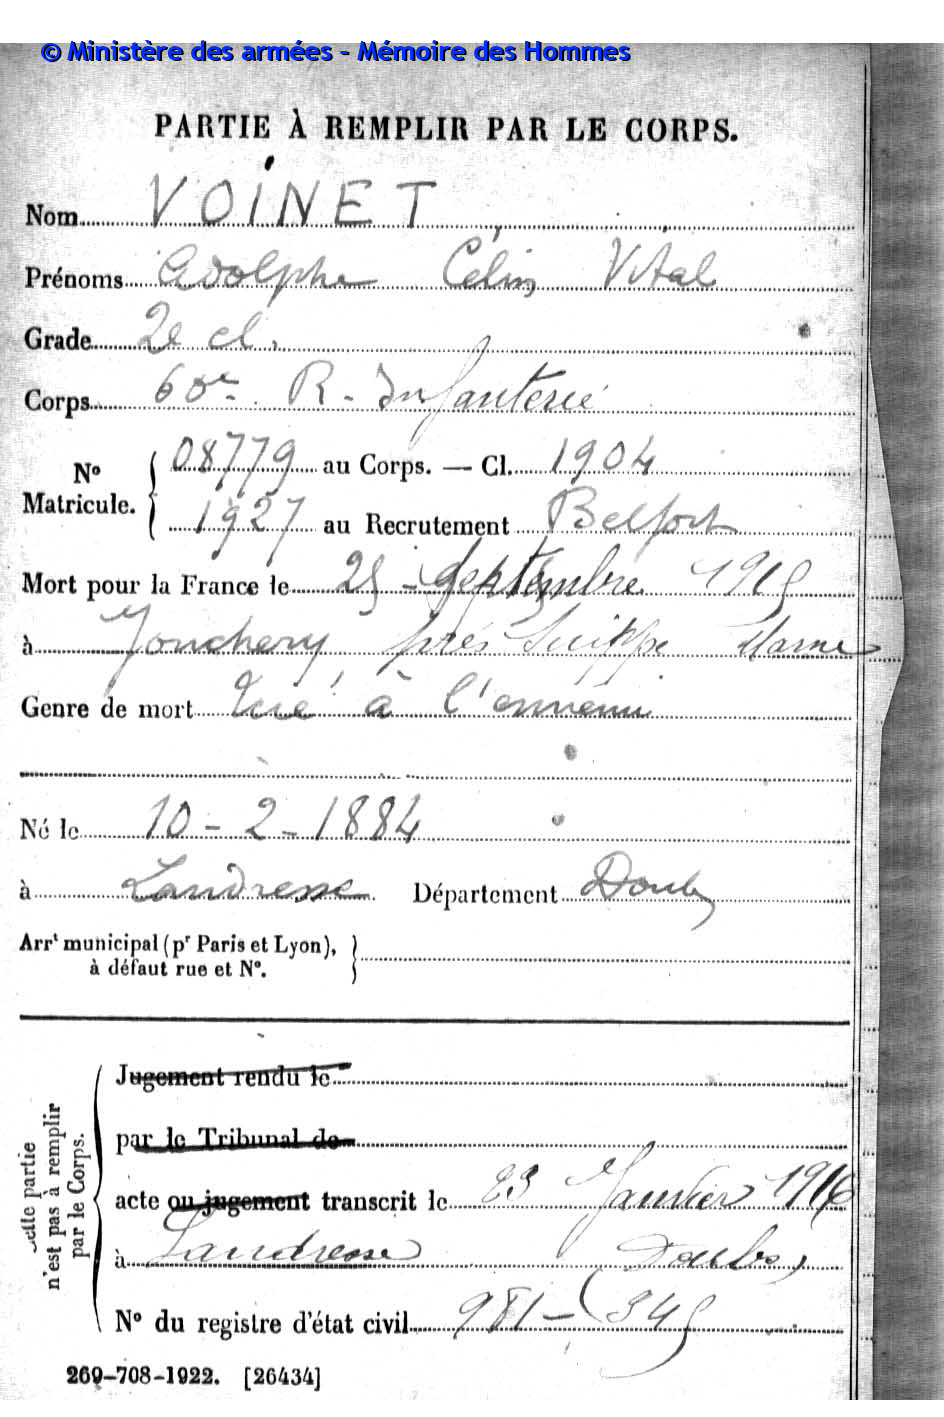 © Ministère des armées - Mémoire des Hommes
PARTIE À REMPLIR PAR LE CORPS.
Nom VOINET
Prénoms Adolphe Célin Vital
Grade 2e cl.
Corps 60e R. Infanterie
No Matricule. 08779 au Corps. — Cl. 1904
1927 au Recrutement Belfort
Mort pour la France le 25 - Septembre 1915
à Jonchery près Suippe Marne
Genre de mort Tué à l'ennemi
Né le 10 - 2 - 1884
à Landresse Département Doubs
Arrt municipal (pr Paris et Lyon),
à défaut rue et No.
Cette partie
n'est pas à remplir
par le Corps.
Jugement rendu le
par le Tribunal de
acte ou jugement transcrit le 23 Janvier 1916
à Landresse Doubs
No du registre d'état civil 981 - (345
260-708-1922. [26434]